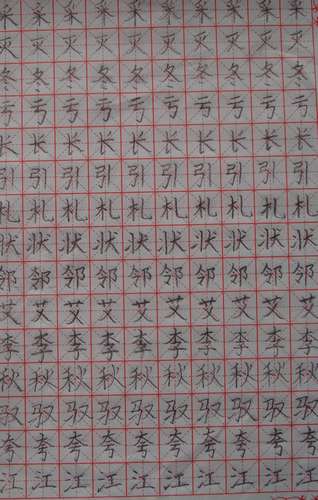 采采采采采采采采采采
灭灭灭灭灭灭灭灭灭灭
冬冬冬冬冬冬冬冬冬冬
亏亏亏亏亏亏亏亏亏亏
长长长长长长长长长长
引引引引引引引引引引
札札札札札札札札札札
状状状状状状状状状状
邻邻邻邻邻邻邻邻邻邻
艾艾艾艾艾艾艾艾艾艾
李李李李李李李李李李
秋秋秋秋秋秋秋秋秋秋
驭驭驭驭驭驭驭驭驭驭
夸夸夸夸夸夸夸夸夸夸
江江江江江江江江江江